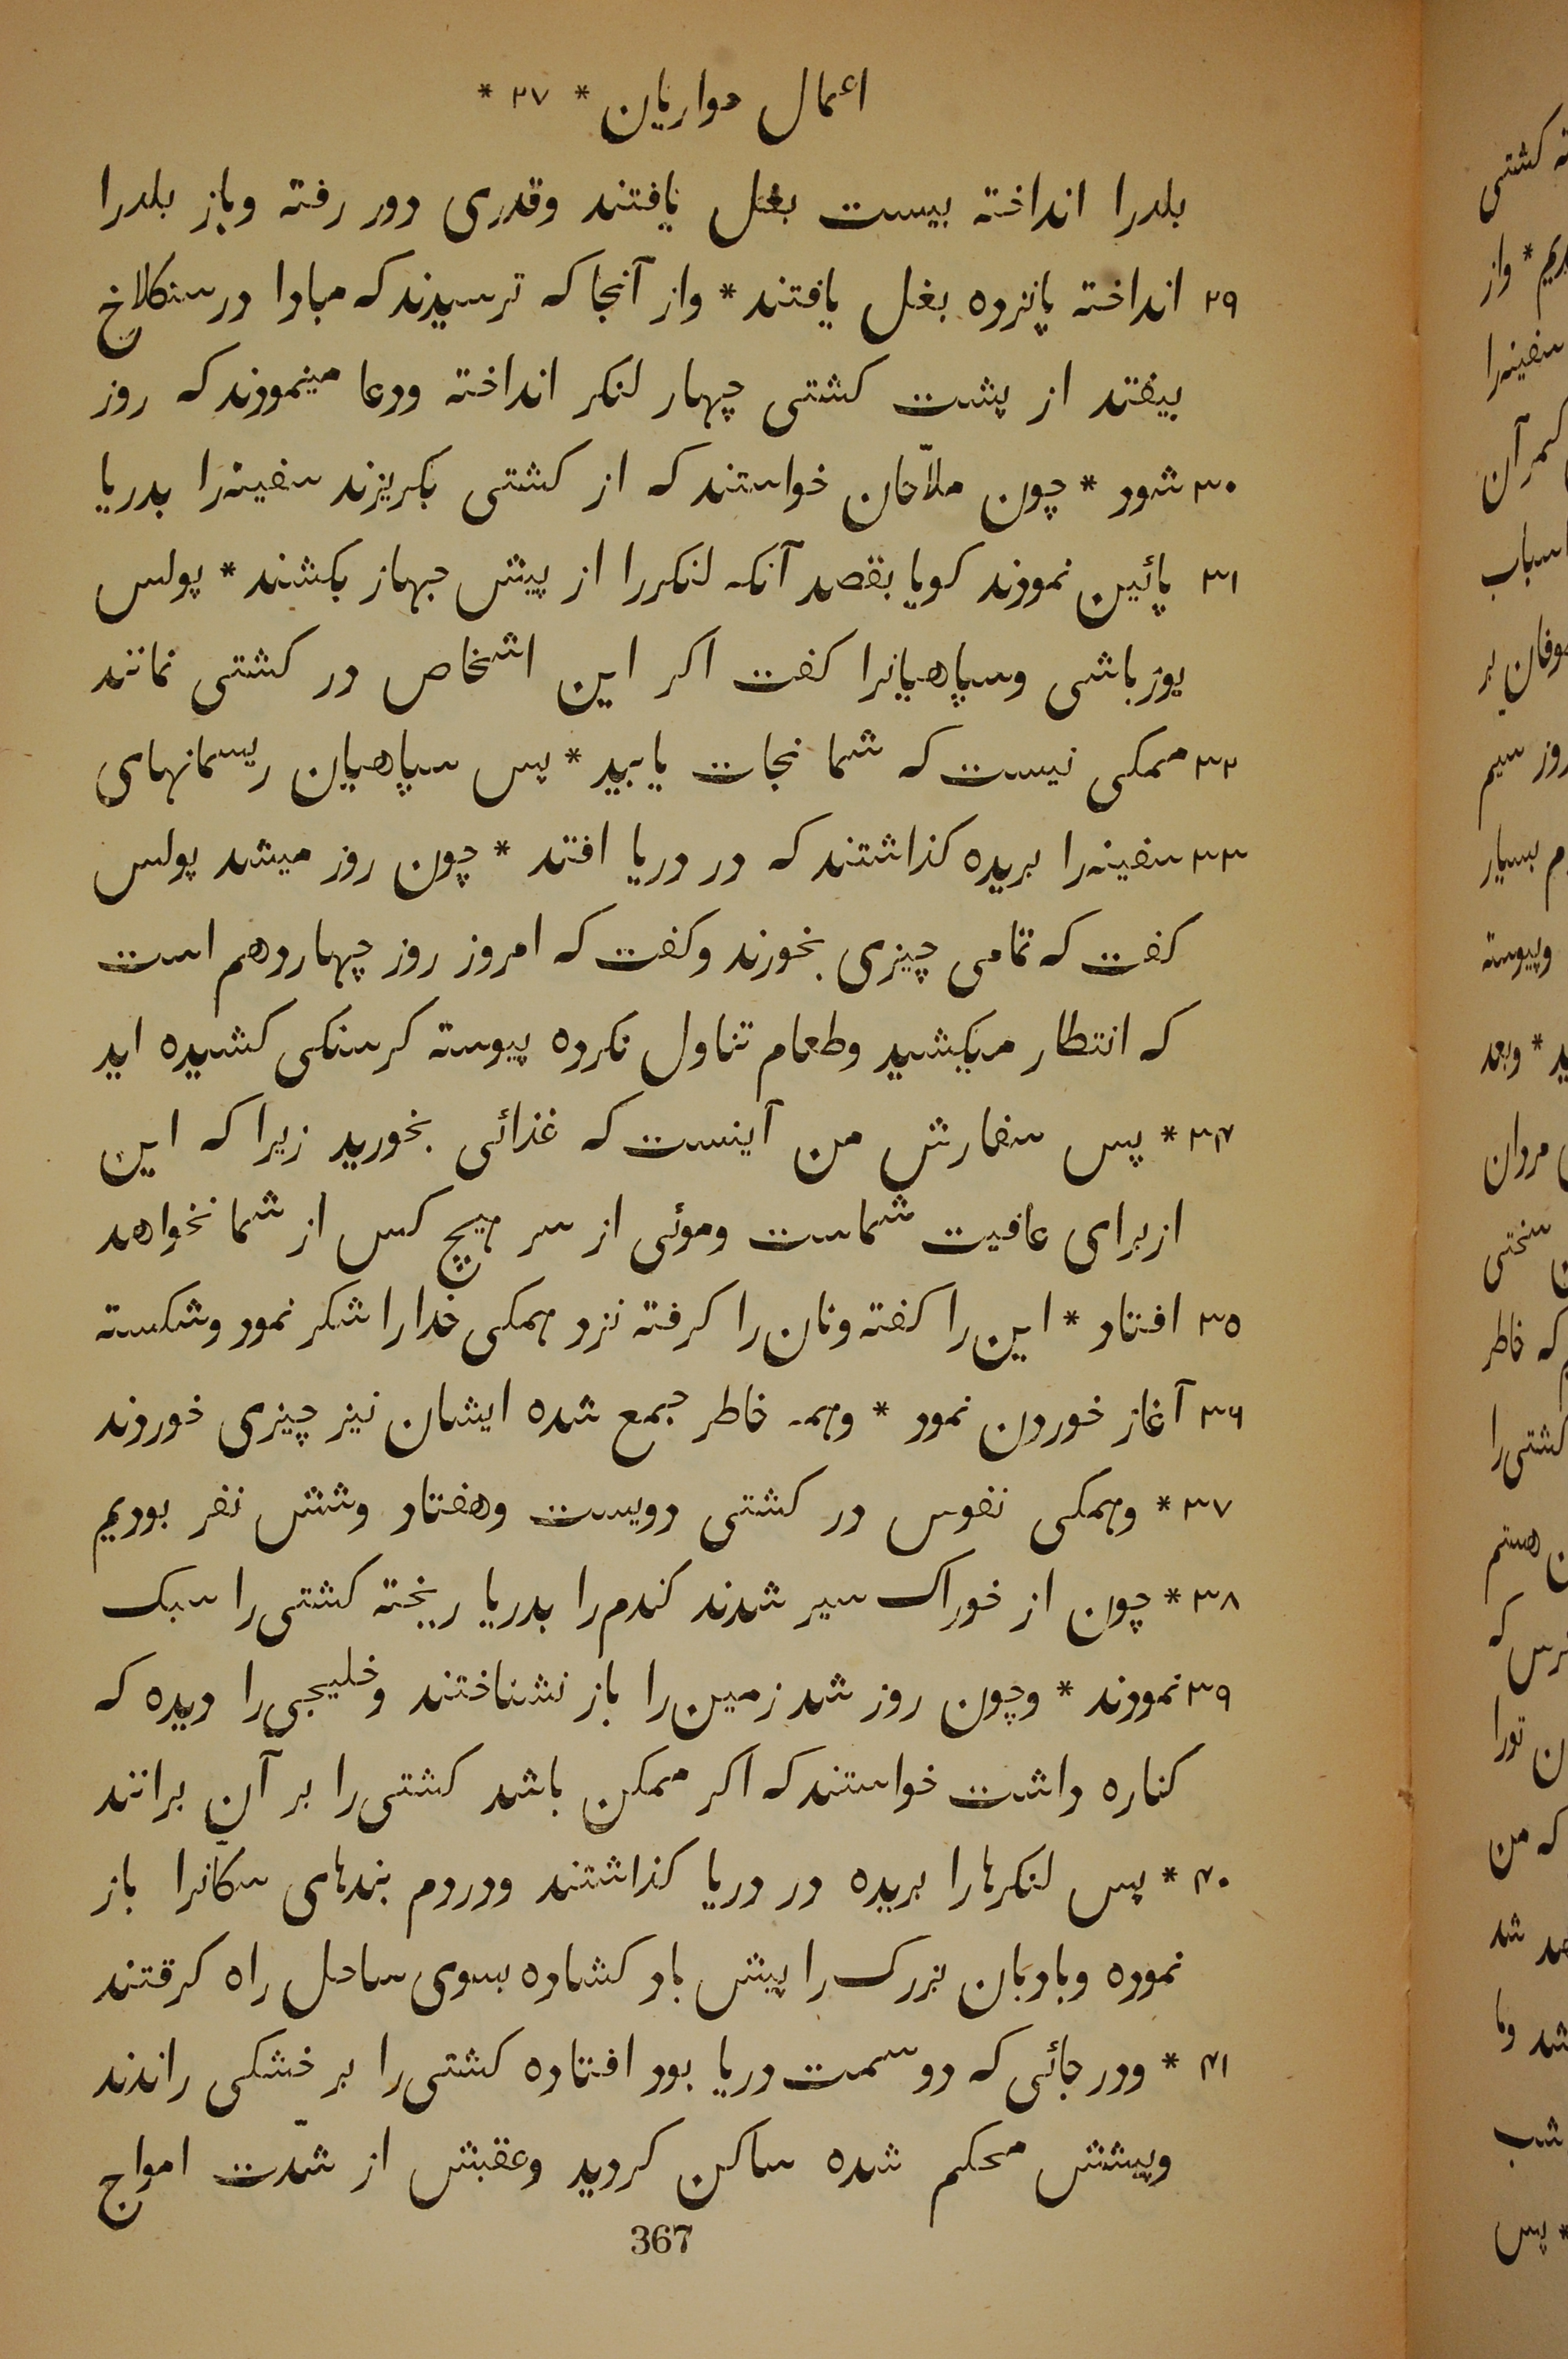 اعمال حواریان * ۲۷ *
بلدرا انداخته بیست بغل یافتند وقدری دور رفته وباز بلدرا
۲۹ انداخته پانزده بغل یافتند * واز آنجا که ترسیدند که مبادا در سنکلاخ
بیفتد از پشت کشتی چهار لنکر انداخته ودعا مینمودند که روز
۳۰ شود * چون ملاّحان خواستند که از کشتی بکریزند سفینه‌را بدریا
۳۱ پائین نمودند کویا بقصد آنکه لنکررا از پیش جهاز بکشند * پولس
یوزباشی وسپاهیانرا کفت اکر این اشخاص در کشتی نمانند
۳۲ ممکی نیست که شما نجات یابید * پس سپاهیان ریسمانهای
۳۳ سفینه‌را بریده کذاشتند که در دریا افتد * چون روز میشد پولس
کفت که تمامی چیزی بخورند وکفت که امروز روز چهاردهم است
که انتطار میکشید وطعام تناول نکرده پیوسته کرسنکی کشیده اید
۳۴ * پس سفارش من آینست که غذائی بخورید زیرا که این
ازبرای عافیت شماست وموئی از سر هیچ کس از شما نخواهد
۳۵ افتاد * این را کفته ونان را کرفته نزد همکی خدارا شکر نمود وشکسته
۳۶ آغاز خوردن نمود * وهمه خاطر جمع شده ایشان نیز چیزی خوردند
۳۷ * وهمکی نفوس در کشتی دویست وهفتاد وشش نفر بودیم
۳۸ * چون از خوراک سیر شدند کندم‌را بدریا ریخته کشتی‌را سبک
۳۹ نمودند * وچون روز شد زمین‌را باز نشناختند وخلیجی‌را دیده که
کناره داشت خواستند که اکر ممکن باشد کشتی‌را بر آن برانند
۴۰ * پس لنکرهارا بریده در دریا کذاشتند ودردم بندهای سکّانرا باز
نموده وبادبان بزرک را پیش باد کشاده بسوی ساحل راه کرفتند
۴۱ * ودر جائی که دو سمت دریا بود افتاده کشتی‌را بر خشکی راندند
وپیشش محکم شده ساکن کردید وعقبش از شدّت امواج
367